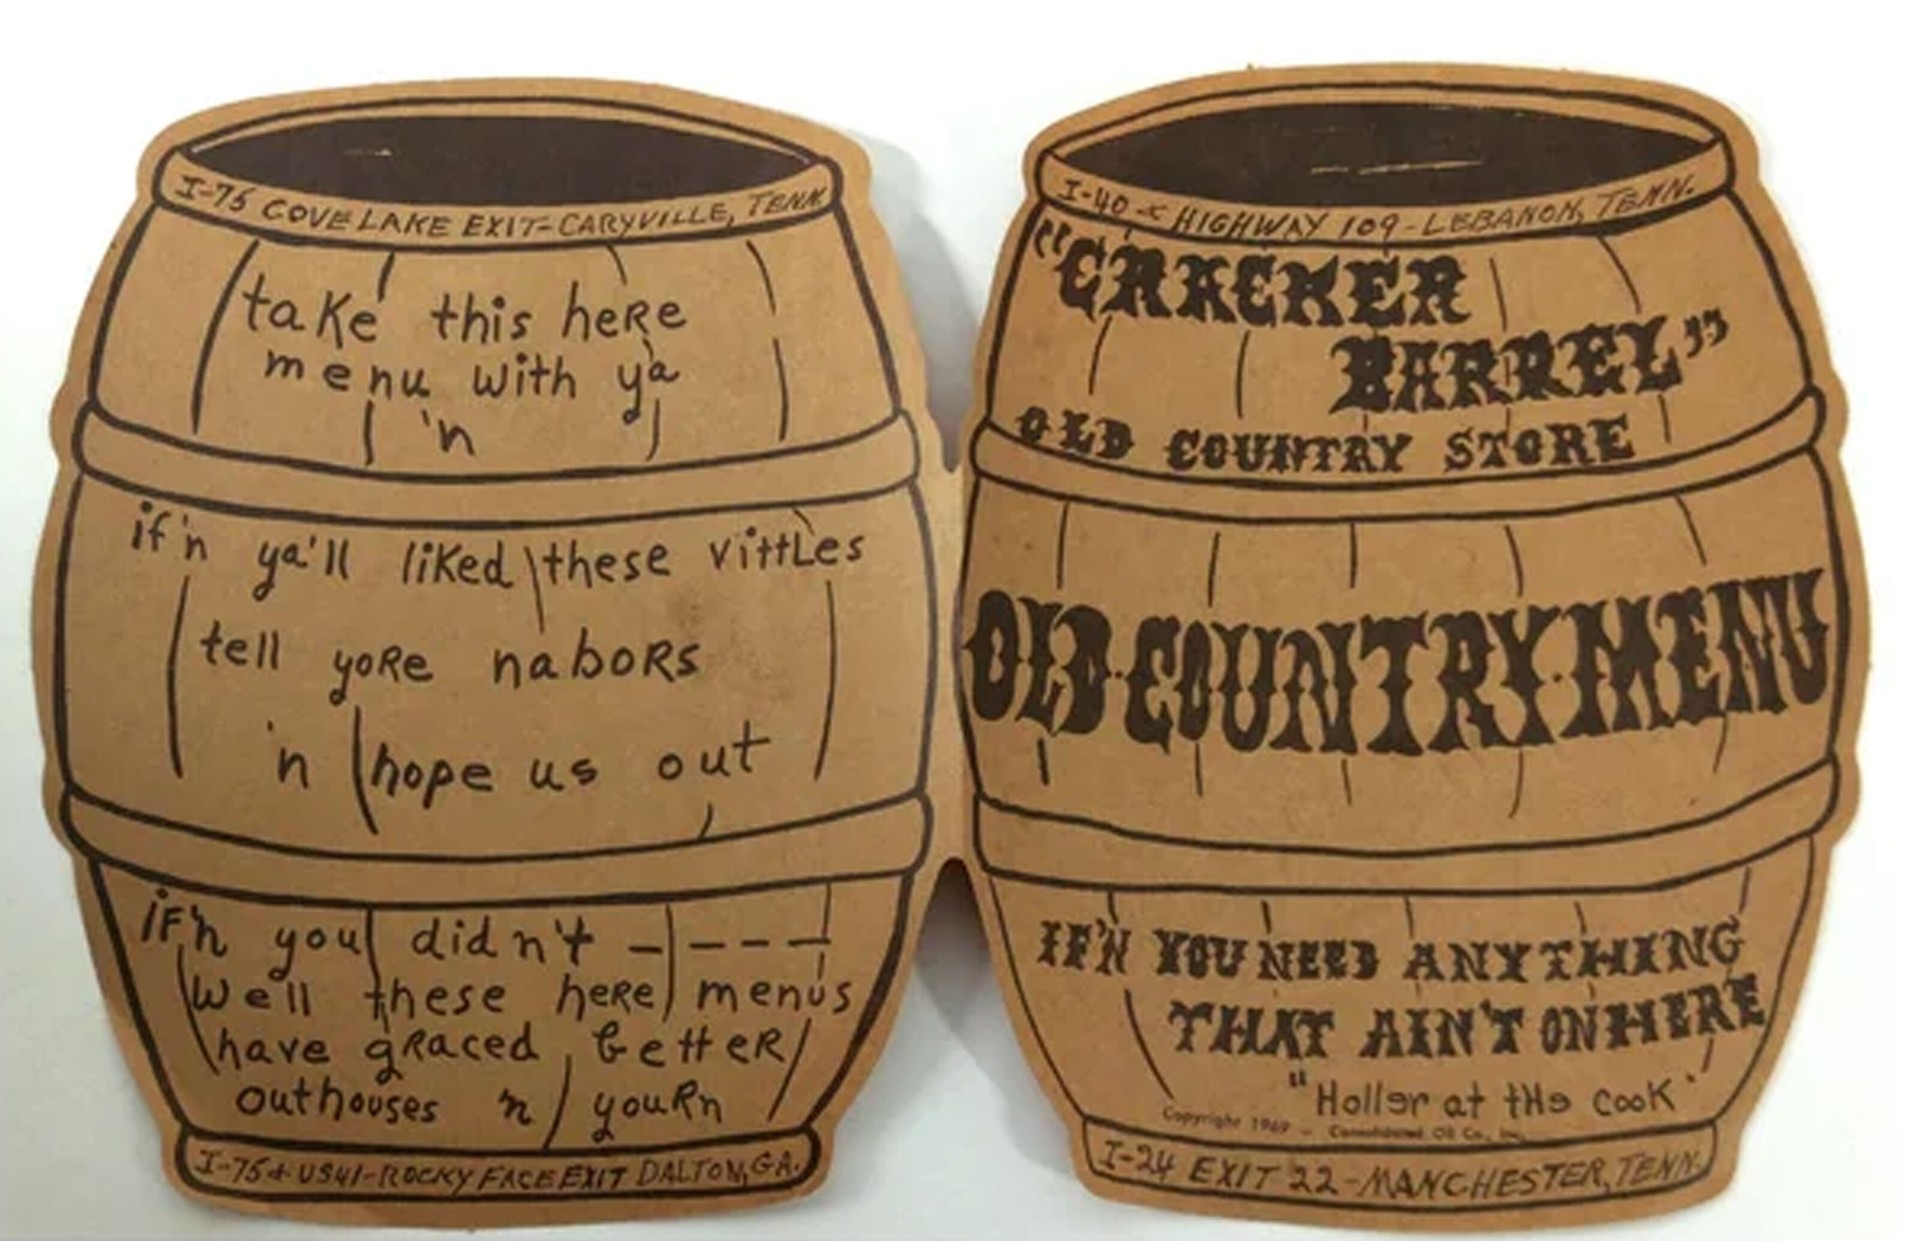 I-75 COVE LAKE EXIT-CARYVILLE, TENN.
take this here
menu with ya
'n
if'n ya'll liked these vittles
tell yore nabors
'n hope us out
iF'n you didn't - - - - -
Well these here menus
have graced better
outhouses 'n yourn
I-75 & US41-ROCKY FACE EXIT DALTON, GA.
I-40 & HIGHWAY 109-LEBANON, TENN.
"CRACKER
BARREL"
OLD COUNTRY STORE
OLD·COUNTRY·MENU
IF'N YOU NEED ANYTHING
THAT AIN'T ON HERE
"Holler at the cook"
Copyright 1969 - Consolidated Oil Co., Inc.
I-24 EXIT 22-MANCHESTER, TENN.